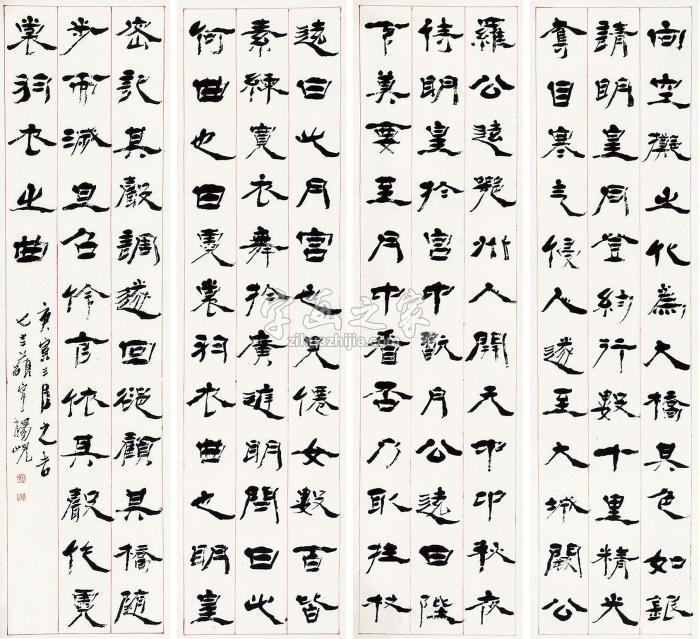 向空擲之化為大橋其色如銀
請明皇同登約行數十里精光
奪目寒气侵人遂至大城闕公
羅公遠鄂州人開元中中秋夜
侍明皇於宮中翫月公遠曰陛
下莫要至月中看否乃取拄杖
遠曰此月宮也見僊女數百皆
素練寬衣舞於廣庭明問曰此
何曲也曰霓裳羽衣曲也明皇
密記其聲調遂回卻顧其橋隨
步而滅旦召伶官依其聲作霓
裳羽衣之曲
庚寅三月之吉
楊峴
字画之家
zihuazhijia.com